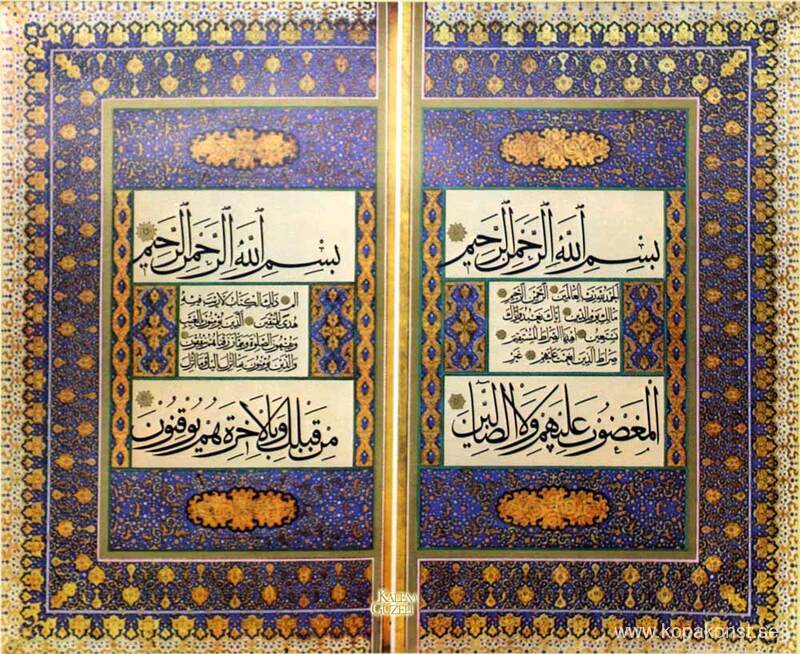 بِسْمِ اللّٰهِ الرَّحْمٰنِ الرَّحِيمِ
الحمد لله رب العالمين الرحمن الرحيم
مالك يوم الدين اياك نعبد واياك
نستعين اهدنا الصراط المستقيم
صراط الذين انعمت عليهم غير
المغضوب عليهم ولا الضالين
بِسْمِ اللّٰهِ الرَّحْمٰنِ الرَّحِيمِ
الم ذلك الكتاب لا ريب فيه
هدى للمتقين الذين يؤمنون بالغيب
ويقيمون الصلوة ومما رزقناهم ينفقون
والذين يؤمنون بما انزل اليك وما انزل
من قبلك وبالاخرة هم يوقنون
KALEM
GÜZELİ
www.kopakonst.se